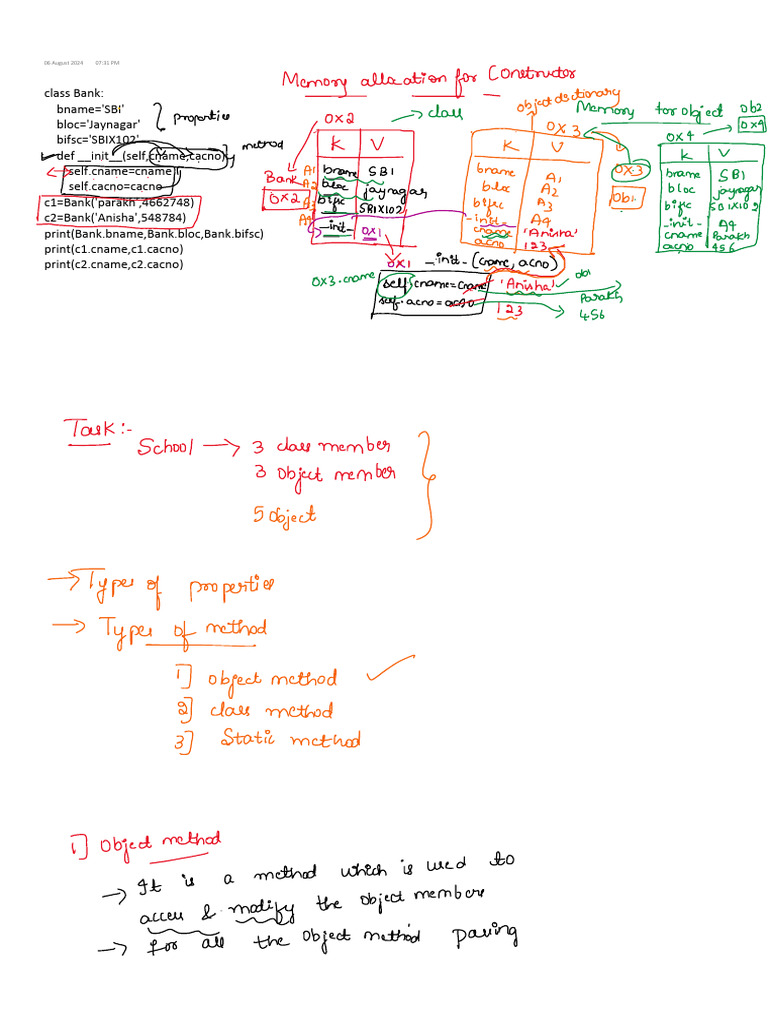 06 August 2024 07:31 PM
Memory allocation for Constructor
class Bank:
bname='SBI'
bloc='Jaynagar'
bifsc='SBIX102'
def __init__(self,cname,cacno):
self.cname=cname
self.cacno=cacno
c1=Bank('parakh',4662748)
c2=Bank('Anisha',548784)
print(Bank.bname,Bank.bloc,Bank.bifsc)
print(c1.cname,c1.cacno)
print(c2.cname,c2.cacno)
properties
method
0x2
class
K V
bname SBI
bloc jaynagar
bifsc SBIX102
_init_ 0x1
A1
A2
A3
A4
Bank
0x2
object dictionary
0x3
K V
bname A1
bloc A2
bifsc A3
_init_ A4
cname 'Anisha'
acno 123
0x3
Ob1
Memory for object
Ob2
0x4
0x4
K V
bname SBI
bloc jaynagar
bifsc SBIX102
_init_ A4
cname Parakh
acno 456
0x1
_init_ (cname, acno)
0x3.cname
self.cname=cname 'Anisha'
self.acno=acno 123
Parakh
456
Task:-
School → 3 class member
3 Object member
5 Object
→ Types of properties
→ Types of method
1] object method
2] class method
3] Static method
1] Object method
→ It is a method which is used to
access & modify the object members
→ for all the object method passing